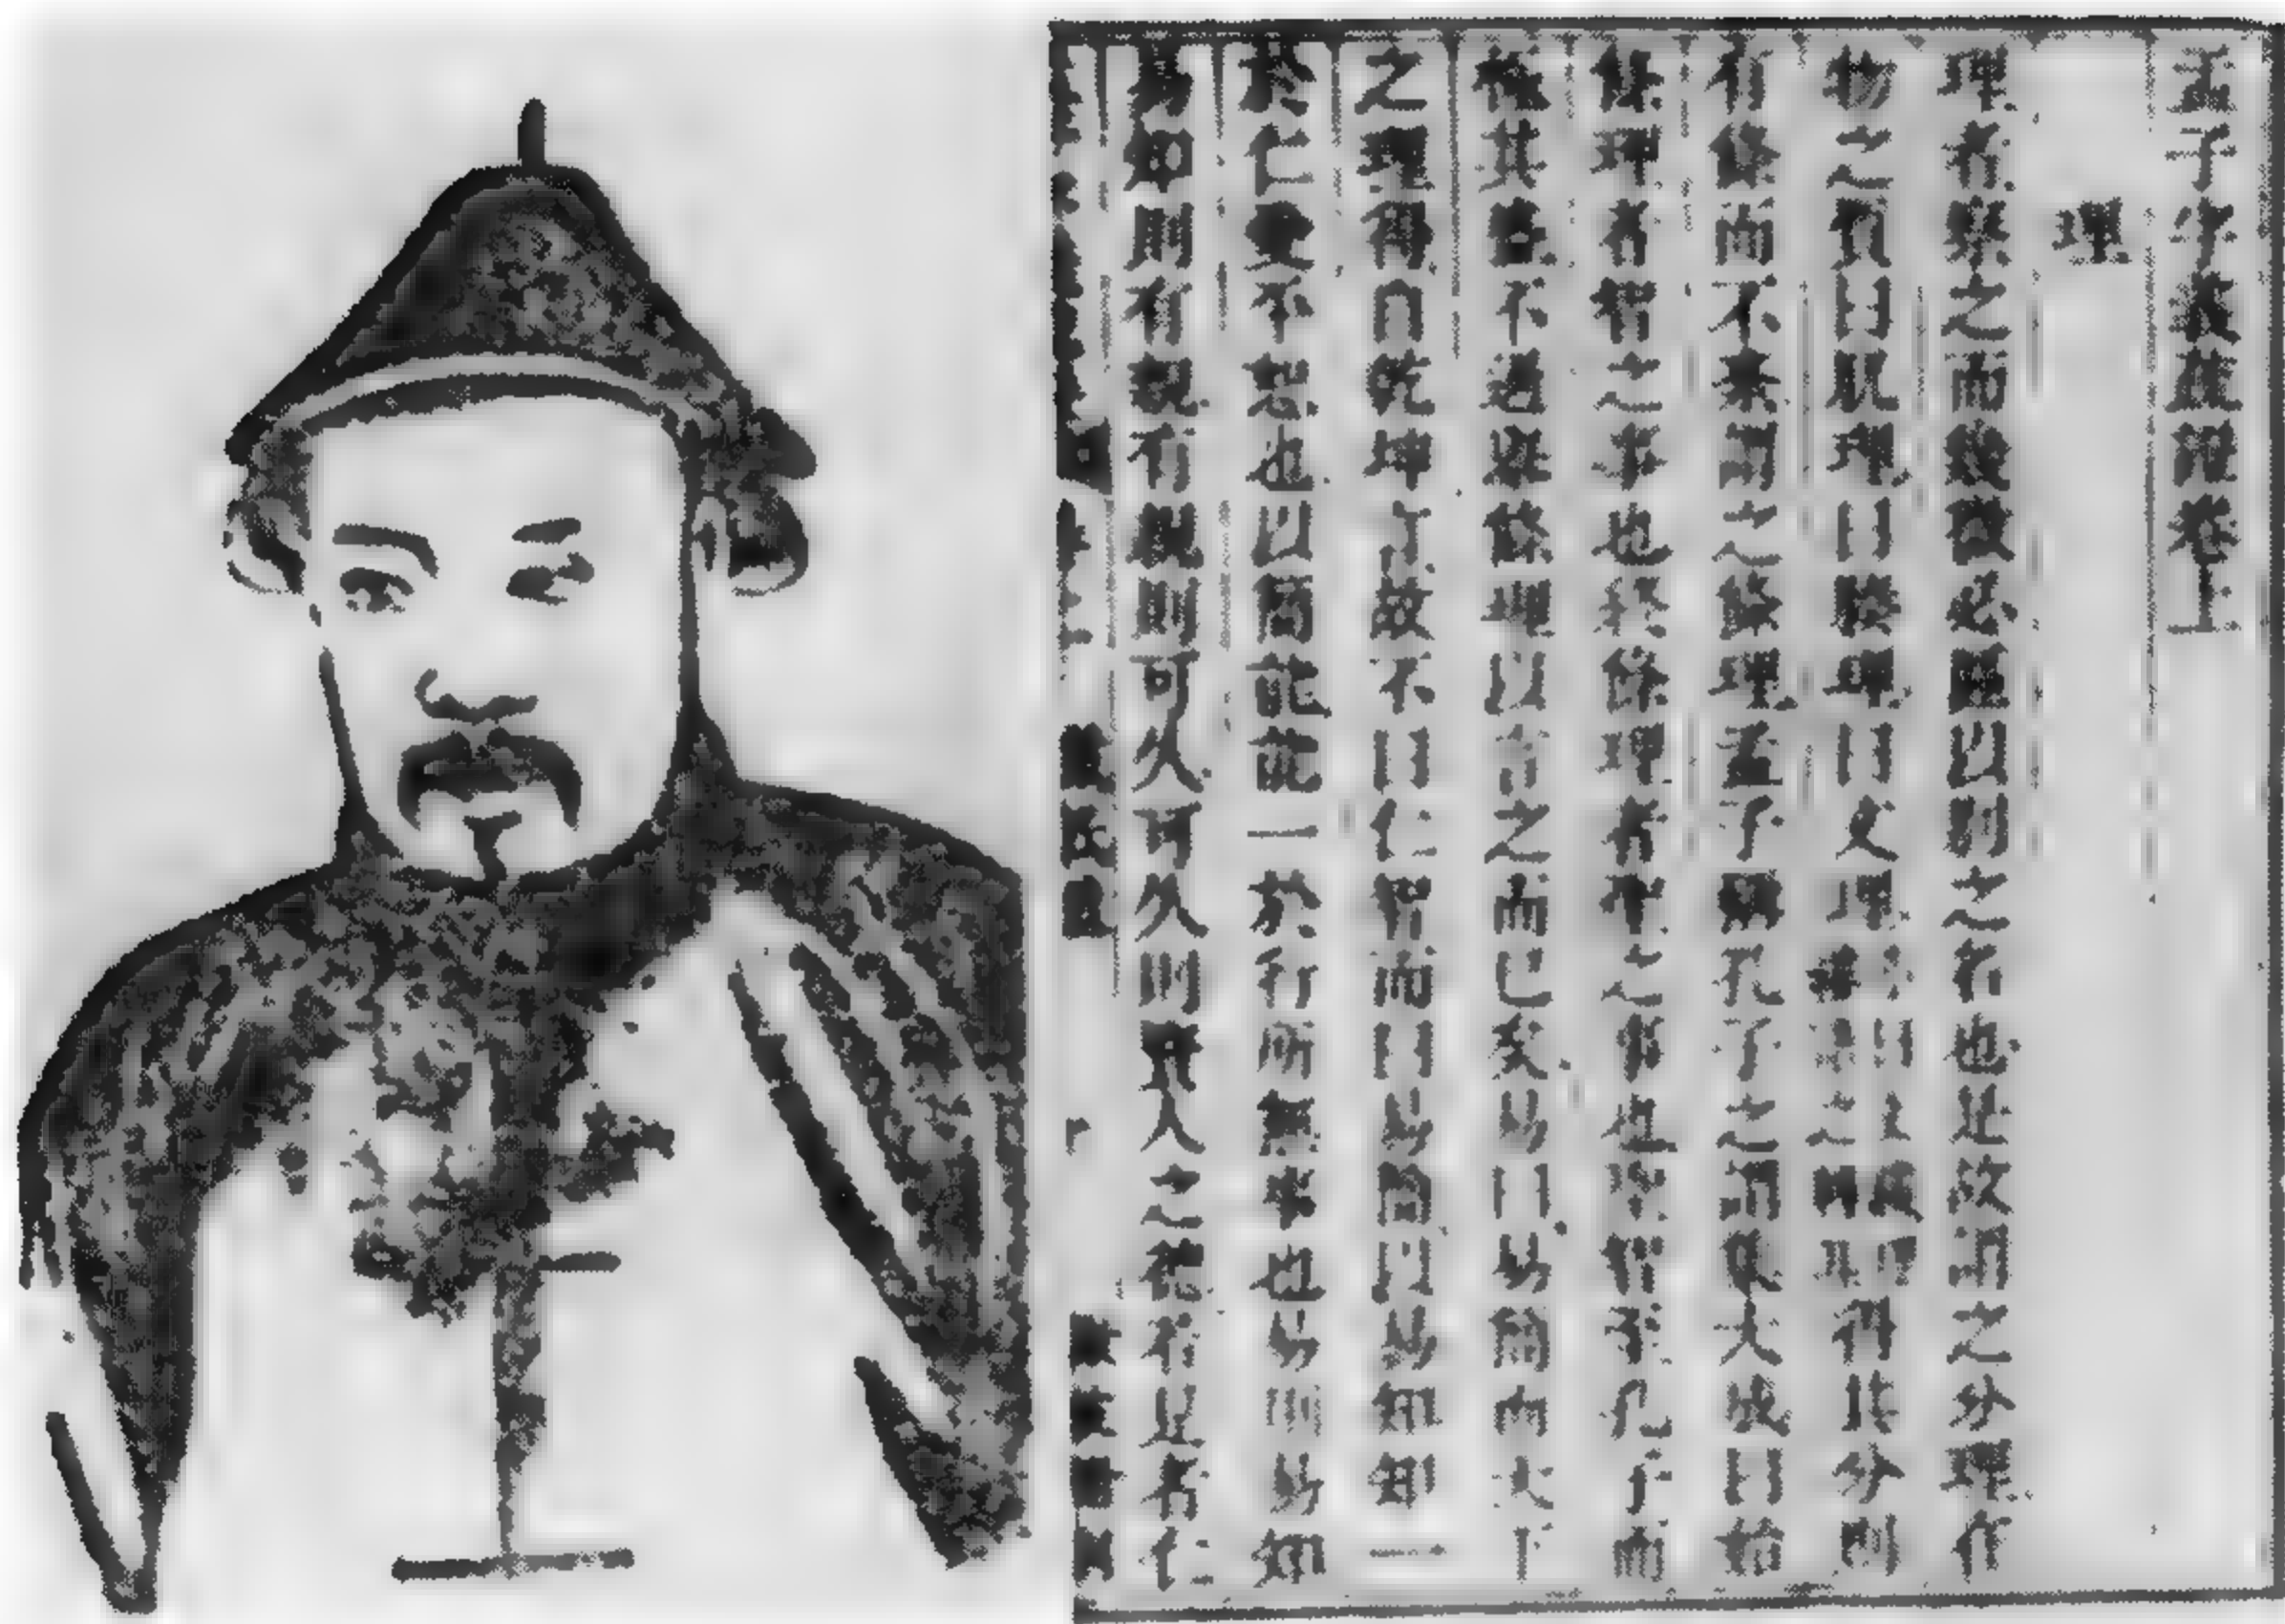 孟子字義疏證卷上
理
理者察之而幾微必區以別之名也是故謂之分理在
物之質曰肌理曰腠理曰文理亦曰文縷理縷語之轉耳得其分則
有條而不紊謂之條理孟子稱孔子之謂集大成曰始
條理者智之事也終條理者聖之事也聖智至孔子而
極其盛不過舉條理以言之而已矣易曰易簡而天下
之理得自乾坤言故不曰仁智而曰易簡以易知知一
於仁愛平恕也以簡能能一於行所無事也易則易知
易知則有親有親則可久可久則賢人之德若是者仁